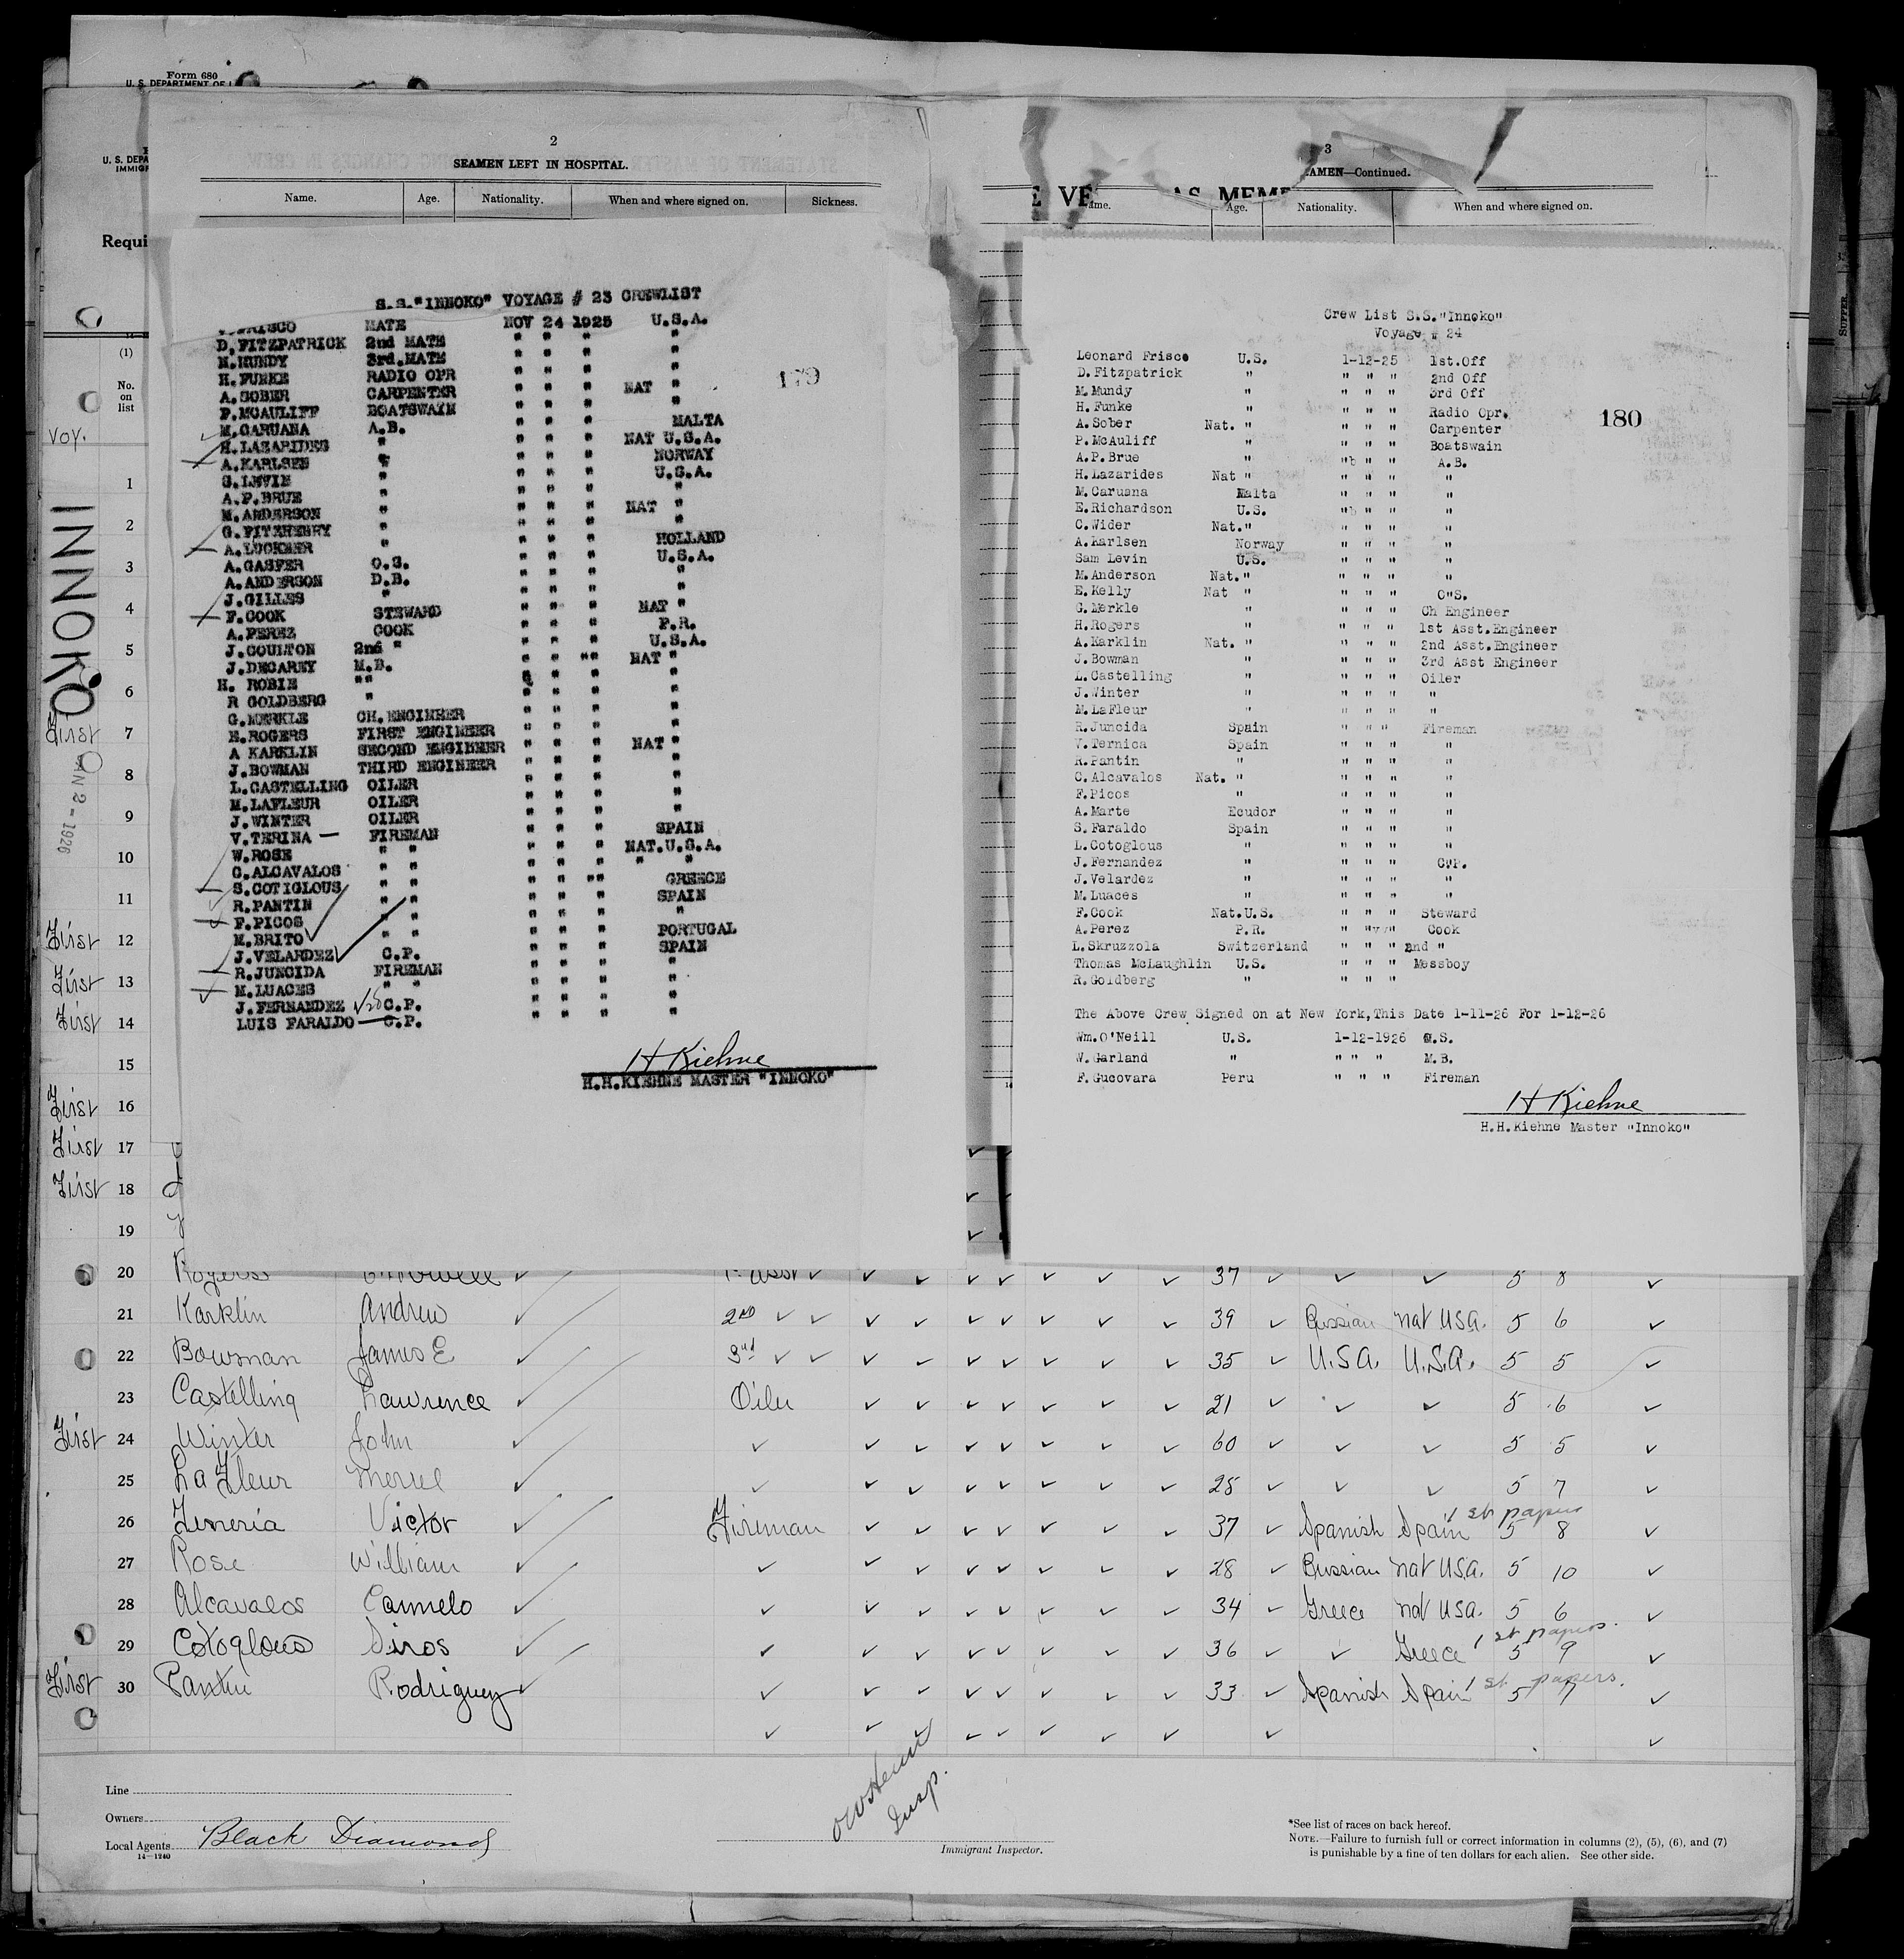 Form 680
U. S. DEPARTMENT OF
U. S. DEPA
IMMIG
Requi
(1)
No.
on
list
voy.
INNOKO
JAN 2 - 1926
2
SEAMEN LEFT IN HOSPITAL.
Name. Age. Nationality. When and where signed on. Sickness.
S.S."INNOKO" VOYAGE # 23 CREWLIST
FRISCO MATE NOV 24 1925 U.S.A.
D.FITZPATRICK 2nd MATE " " " "
M.MUNDY 3rd.MATE " " " "
H.FUNKE RADIO OPR " " " "
A.SOBER CARPENTER " " " NAT "
P.MCAULIFF BOATSWAIN " " " "
M.CARUANA A.B. " " " MALTA
H.LAZARIDES " " " " NAT U.S.A.
A.KARLSEN " " " " NORWAY
S.LEVIN " " " " U.S.A.
A.P.BRUE " " " " "
M.ANDERSON " " " " NAT "
G.FITZHENRY " " " " "
A.LUCKNER " " " " HOLLAND
A.GASPER O.S. " " " U.S.A.
A.ANDERSON D.B. " " " "
J.GILLES " " " " "
F.COOK STEWARD " " " NAT "
A.PEREZ COOK " " " P.R.
J.COULTON 2nd " " " " U.S.A.
J.DECAREY M.B. " " "" NAT "
H. ROBIE "" " " " "
R GOLDBERG " " " " "
G.MERKLE CH.ENGINEER " " " "
H.ROGERS FIRST ENGINEER " " " "
A KARKLIN SECOND ENGINEER " " " NAT "
J.BOWMAN THIRD ENGINEER " " " "
L.CASTELLING OILER " " " "
M.LAFLEUR OILER " " " "
J.WINTER OILER " " " "
V.TERINA FIREMAN " " " SPAIN
W.ROSE " " " " " NAT.U.S.A.
C.ALCAVALOS " " " " " " "
S.COTIGLOUS " " " " "" GREECE
R.PANTIN " " " " " SPAIN
F.PICOS " " " " " "
M.BRITO " " " " " PORTUGAL
J.VELARDEZ C.P. " " " SPAIN
R.JUNCIDA FIREMAN " " " "
M.LUACES " " " " " "
J.FERNANDEZ C.P. " " " "
LUIS FARALDO C.P. " " " "
179
H Kiehne
H.H.KIEHNE MASTER "INNOKO"
3
AMEN—Continued.
E VE AS MEME
ame. Age. Nationality. When and where signed on.
Crew List S.S."Innoko"
Voyage # 24
Leonard Frisco U.S. 1-12-25 1st.Off
D. Fitzpatrick " " " " 2nd Off
M.Mundy " " " " 3rd Off
H.Funke " " " " Radio Opr.
A.Sober Nat. " " " " Carpenter
P.McAuliff " " " " Boatswain
A.P.Brue " " " " A.B.
H.Lazarides Nat " " " " "
M.Caruana Malta " " " "
E.Richardson U.S. " " " "
C.Wider Nat." " " " "
A.Karlsen Norway " " " "
Sam Levin U.S. " " " "
M.Anderson Nat." " " " "
E.Kelly Nat " " " " O"S.
G.Merkle " " " " Ch Engineer
H.Rogers " " " " 1st Asst.Engineer
A.Karklin Nat. " " " " 2nd Asst.Engineer
J.Bowman " " " " 3rd Asst Engineer
L.Castelling " " " " Oiler
J.Winter " " " " "
M.LaFleur " " " " "
R.Juncida Spain " " " Fireman
V.Ternica Spain " " " "
R.Pantin " " " " "
C.Alcavalos Nat. " " " " "
F.Picos " " " " "
A.Marte Ecudor " " " "
S.Faraldo Spain " " " "
L.Cotoglous " " " " "
J.Fernandez " " " " C.P.
J.Velardez " " " " "
M.Luaces " " " " "
F.Cook Nat.U.S. " " " Steward
A.Perez P.R. " " " Cook
L.Skruzzola Switzerland " " " 2nd "
Thomas McLaughlin U.S. " " " Messboy
R.Goldberg " " " "
180
The Above Crew Signed on at New York,This Date 1-11-26 For 1-12-26
Wm.O'Neill U.S. 1-12-1926 O.S.
W.Garland " " " " M.B.
F.Gucovara Peru " " " Fireman
H Kiehne
H.H.Kiehne Master "Innoko"
1
2
3
4
5
6
First 7
8
9
10
11
First 12
First 13
First 14
15
First 16
First 17
First 18
19
20 Rogers 1st Asst 37 5 8
21 Karklin Andrew 2nd 39 Russian nat USA. 5 6
22 Bowman James E 3rd 35 U.S.A. U.S.A. 5 5
23 Castelling Lawrence Oiler 21 5 6
First 24 Winter John 60 5 5
25 La Fleur Merrel 28 5 7
26 Zeneria Victor Fireman 37 Spanish Spain 1st papers 5 8
27 Rose William 28 Russian nat USA. 5 10
28 Alcavalos Carmelo 34 Greece nat USA. 5 6
29 Cotoglous Siros 36 Greece 1st papers. 5 9
First 30 Pantin Rodriguez 33 Spanish Spain 1st papers. 5 7
Line
Owners
Local Agents Black Diamond
14—1240
Insp.
Immigrant Inspector.
*See list of races on back hereof.
NOTE.—Failure to furnish full or correct information in columns (2), (5), (6), and (7)
is punishable by a fine of ten dollars for each alien. See other side.
SUFFER